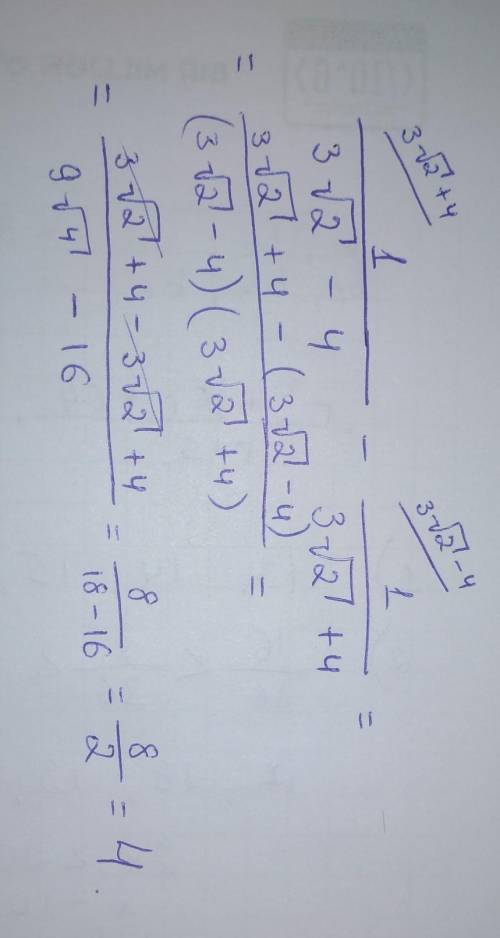 3√2+4 3√2-4
1/(3√2 - 4) - 1/(3√2 + 4) =
= (3√2 + 4 - (3√2 - 4))/((3√2 - 4)(3√2 + 4)) =
= (3√2 + 4 - 3√2 + 4)/(9√4 - 16) = 8/(18 - 16) = 8/2 = 4.